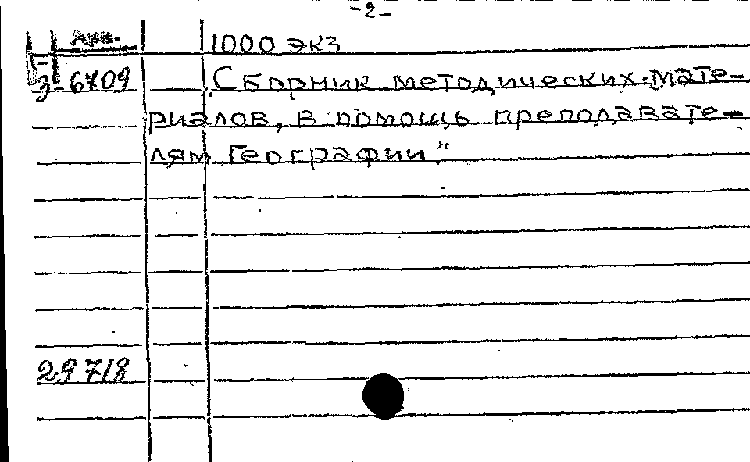 -2-
1000 экз
З-6709 „Сборник методических мате-
риалов, в помощь преподавате-
лям географии"
29718